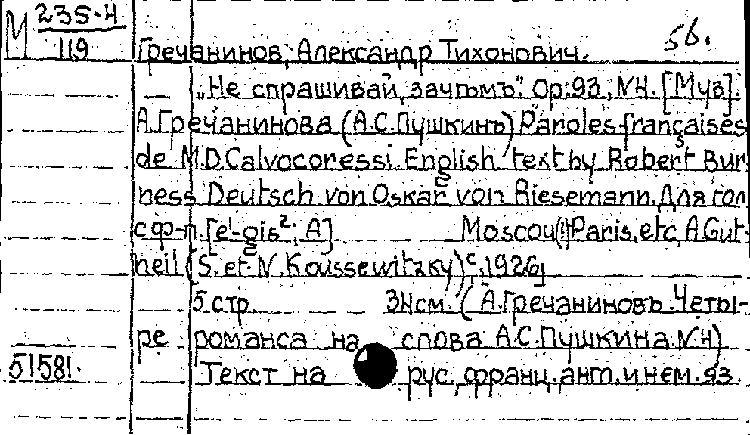 М 235-4
119
56.
Гречанинов, Александр Тихонович.
„Не спрашивай, зачѣмъ". Op.93, №4. [Муз].
А.Гречанинова (А.С.Пушкинъ) Paroles françaises
de M.D.Calvocoressi. English text by Robert Bur
ness Deutsch von Oskar von Riesemann. Для гол
с ф-п. [e¹-gis²; A] Moscou(!) Paris, etc, A.Gut-
heil (S. et N. Koussewitzky) c. 1926]
5 стр. 34см. (А.Гречаниновъ. Четы-
ре романса на слова А.С.Пушкина. №4)
51581.
Текст на рус. франц. англ. и нем. яз.